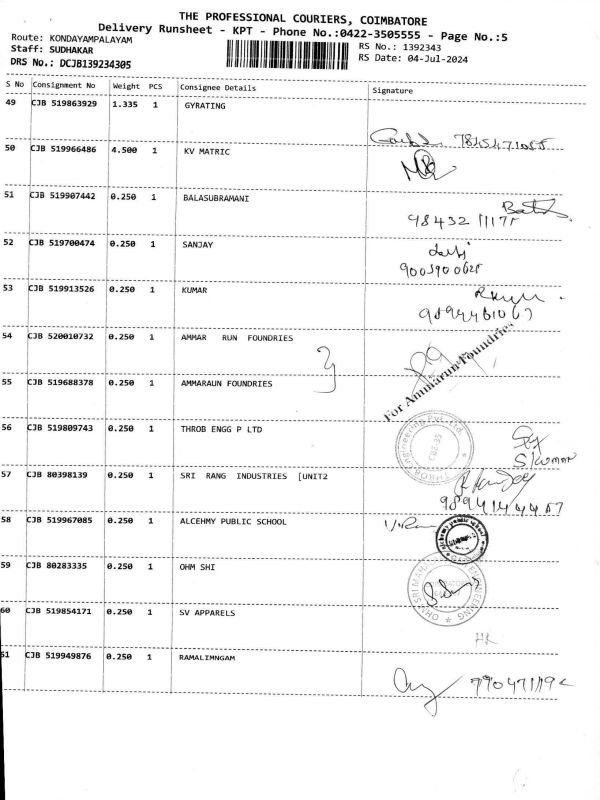 THE PROFESSIONAL COURIERS, COIMBATORE
Delivery Runsheet - KPT - Phone No.:0422-3505555 - Page No.:5
Route: KONDAYAMPALAYAM
RS No.: 1392343
Staff: SUDHAKAR
RS Date: 04-Jul-2024
DRS No.: DCJB139234305
S No Consignment No Weight PCS Consignee Details Signature
49 CJB 519863929 1.335 1 GYRATING
50 CJB 519966486 4.500 1 KV MATRIC
51 CJB 519907442 0.250 1 BALASUBRAMANI
98432 11175
52 CJB 519700474 0.250 1 SANJAY
9003900625
53 CJB 519913526 0.250 1 KUMAR
54 CJB 520010732 0.250 1 AMMAR RUN FOUNDRIES
For Ammarun Foundries
55 CJB 519688378 0.250 1 AMMARAUN FOUNDRIES
56 CJB 519809743 0.250 1 THROB ENGG P LTD
57 CJB 80398139 0.250 1 SRI RANG INDUSTRIES [UNIT2
58 CJB 519967085 0.250 1 ALCEHMY PUBLIC SCHOOL
59 CJB 80283335 0.250 1 OHM SHI
60 CJB 519854171 0.250 1 SV APPARELS
61 CJB 519949876 0.250 1 RAMALIMNGAM